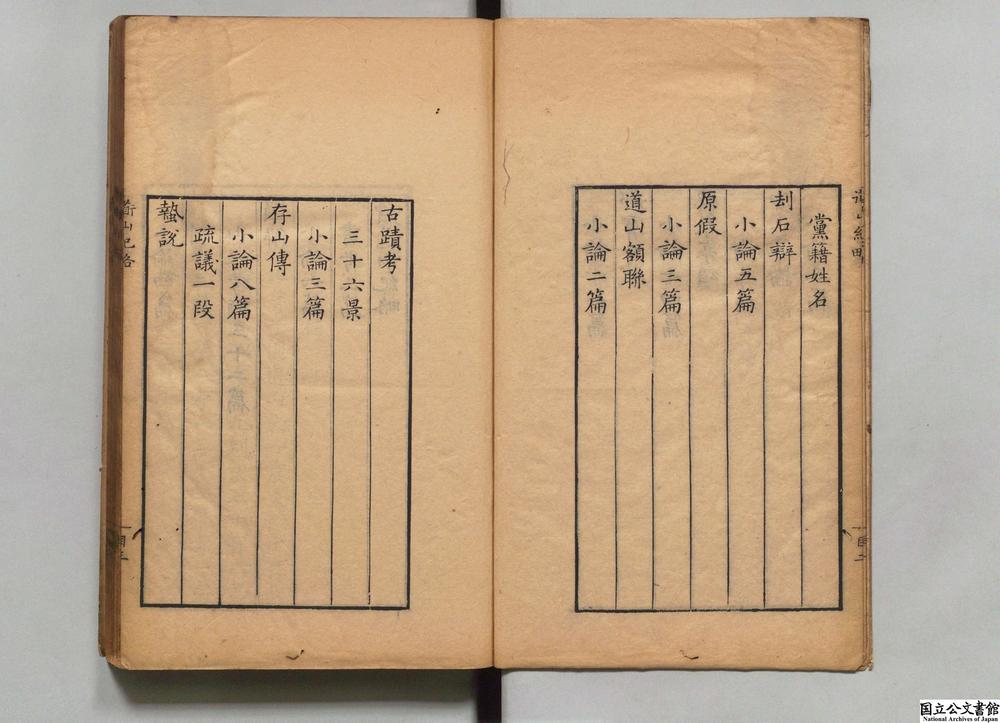 黨籍姓名
刦石辯
小論五篇
原假
小論三篇
道山額聯
小論二篇
古蹟考
三十六景
小論三篇
存山傳
小論八篇
疏議一段
蟄說
国立公文書館
National Archives of Japan